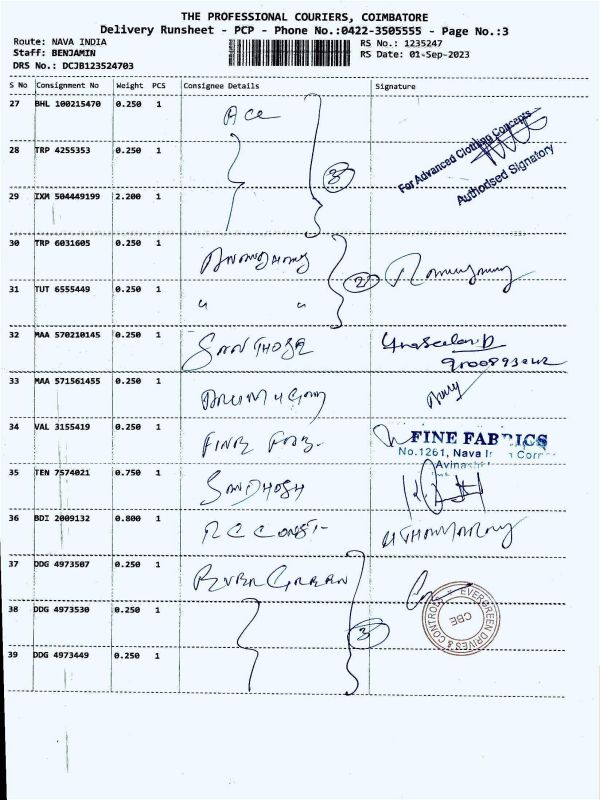 THE PROFESSIONAL COURIERS, COIMBATORE
Delivery Runsheet - PCP - Phone No.:0422-3505555 - Page No.:3
Route: NAVA INDIA
Staff: BENJAMIN
DRS No.: DCJB123524703
RS No.: 1235247
RS Date: 01-Sep-2023
S No Consignment No Weight PCS Consignee Details Signature
27 BHL 100215470 0.250 1 Ace
For Advanced Clothing Concepts
Authorised Signatory
28 TRP 4255353 0.250 1
3
29 IXM 504449199 2.200 1
30 TRP 6031605 0.250 1
2
31 TUT 6555449 0.250 1 " "
32 MAA 570210145 0.250 1 SANTHOSH
33 MAA 571561455 0.250 1 ARUMUGAM
34 VAL 3155419 0.250 1 FINE FAB.
FINE FABRICS
No.1261, Nava In Corner
Avinashi
35 TEN 7574021 0.750 1 SANDHOSH
36 BDI 2009132 0.800 1 RC CONST-
37 DDG 4973507 0.250 1 EVER GREEN
EVERGREEN DRIVES & CONTROLS
CBE
38 DDG 4973530 0.250 1
3
39 DDG 4973449 0.250 1